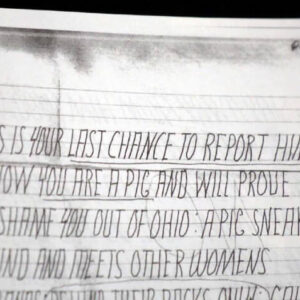 S IS YOUR LAST CHANCE TO REPORT HIM
NOW YOU ARE A PIG AND WILL PROVE
SHAME YOU OUT OF OHIO: A PIG SNEAK
UND AND MEETS OTHER WOMENS
BEHIND THEIR BACKS